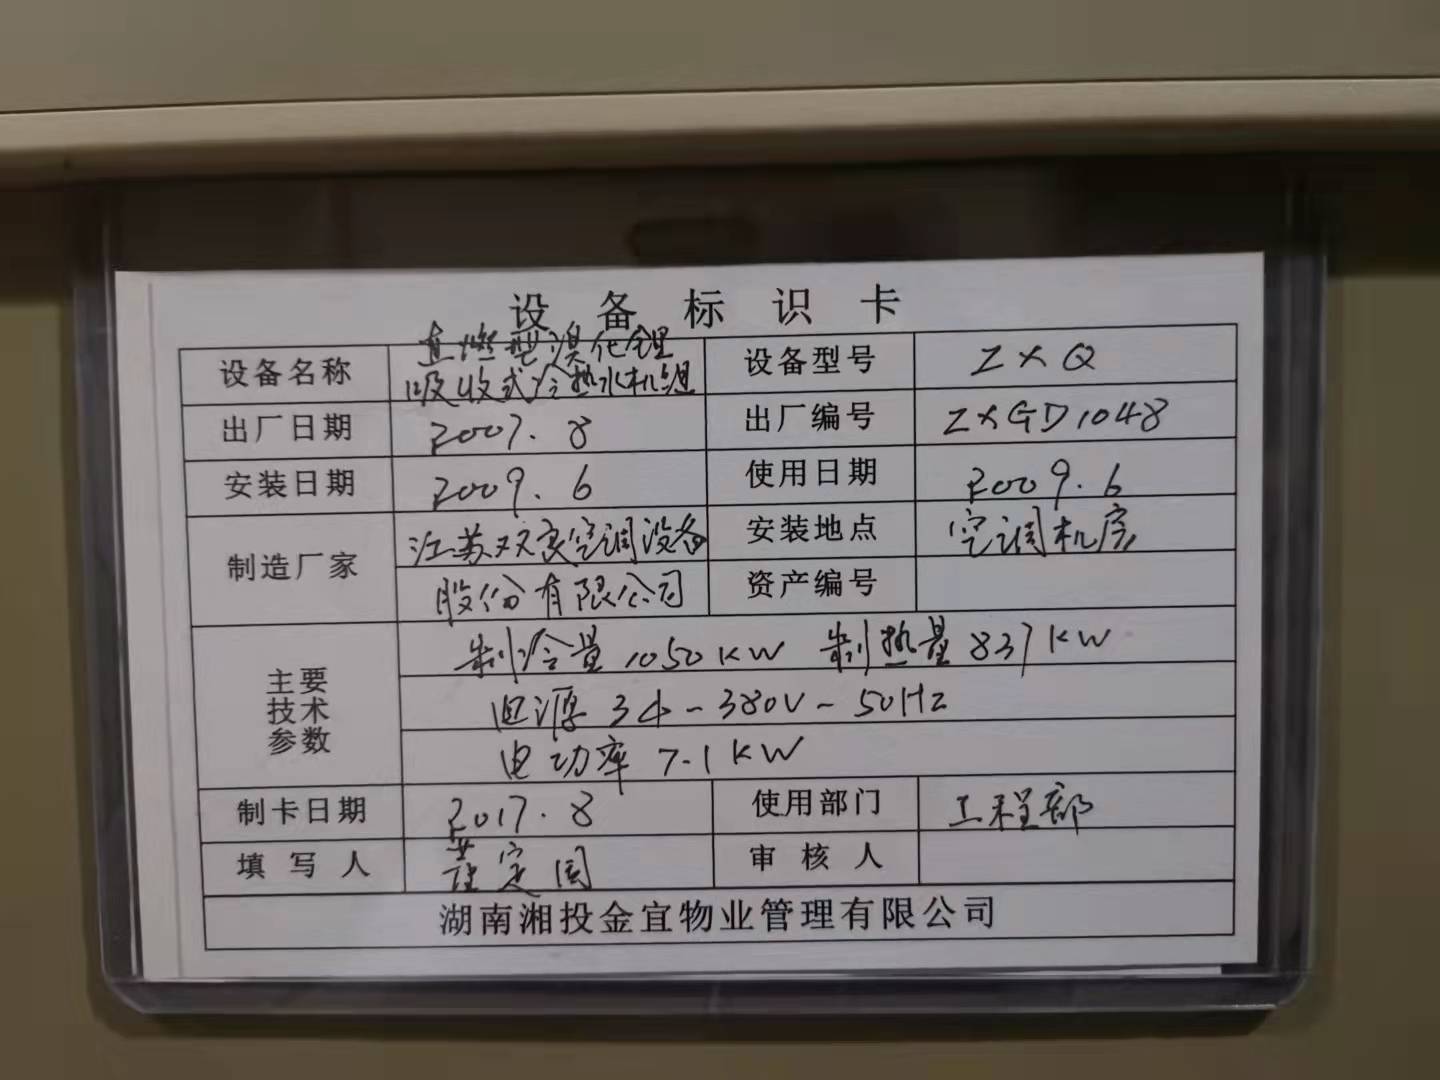 设备标识卡
设备名称 直燃型溴化锂吸收式冷热水机组 设备型号 ZXQ
出厂日期 2007.8 出厂编号 ZXGD1048
安装日期 2009.6 使用日期 2009.6
制造厂家 江苏双良空调设备股份有限公司 安装地点 空调机房
资产编号
主要技术参数 制冷量1050KW 制热量837KW
电源 3ф~380V~50Hz
电功率 7.1KW
制卡日期 2017.8 使用部门 工程部
填写人 定国 审核人
湖南湘投金宜物业管理有限公司